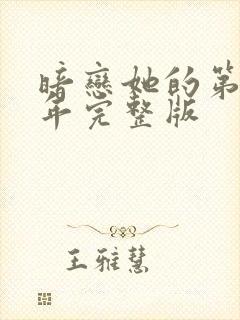 暗戀她的第
年完整版
王雅慧